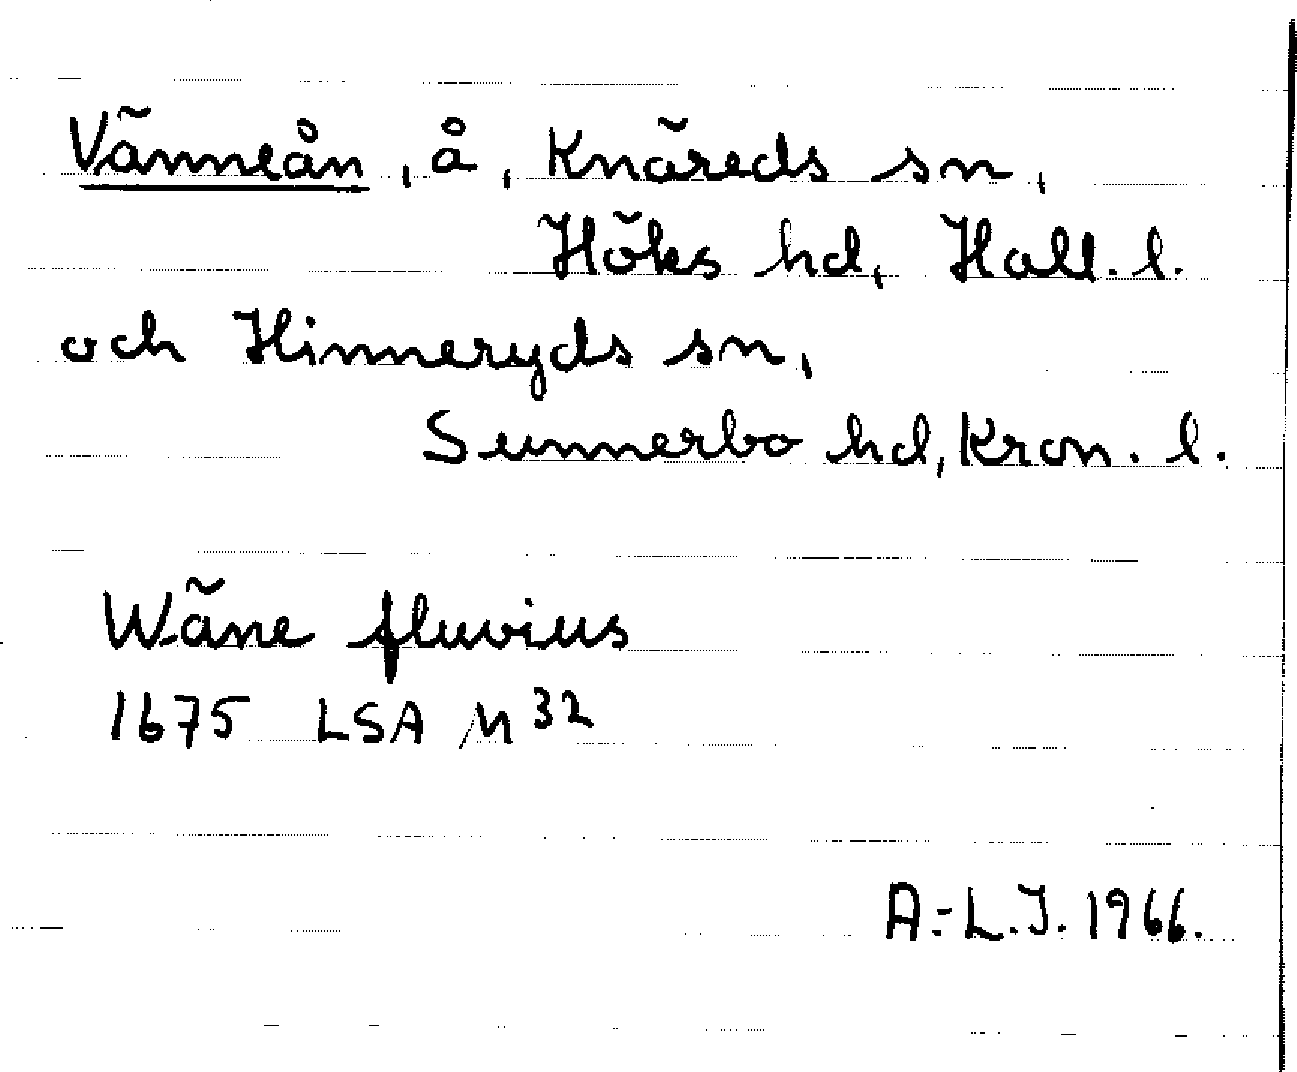 Vänneån, å, Knäreds sn,
Höks hd, Hall. l.
och Hinneryds sn,
Sunnerbo hd, Kron. l.
Wäne fluvius
1675 LSA M 32
A.-L.J. 1966.